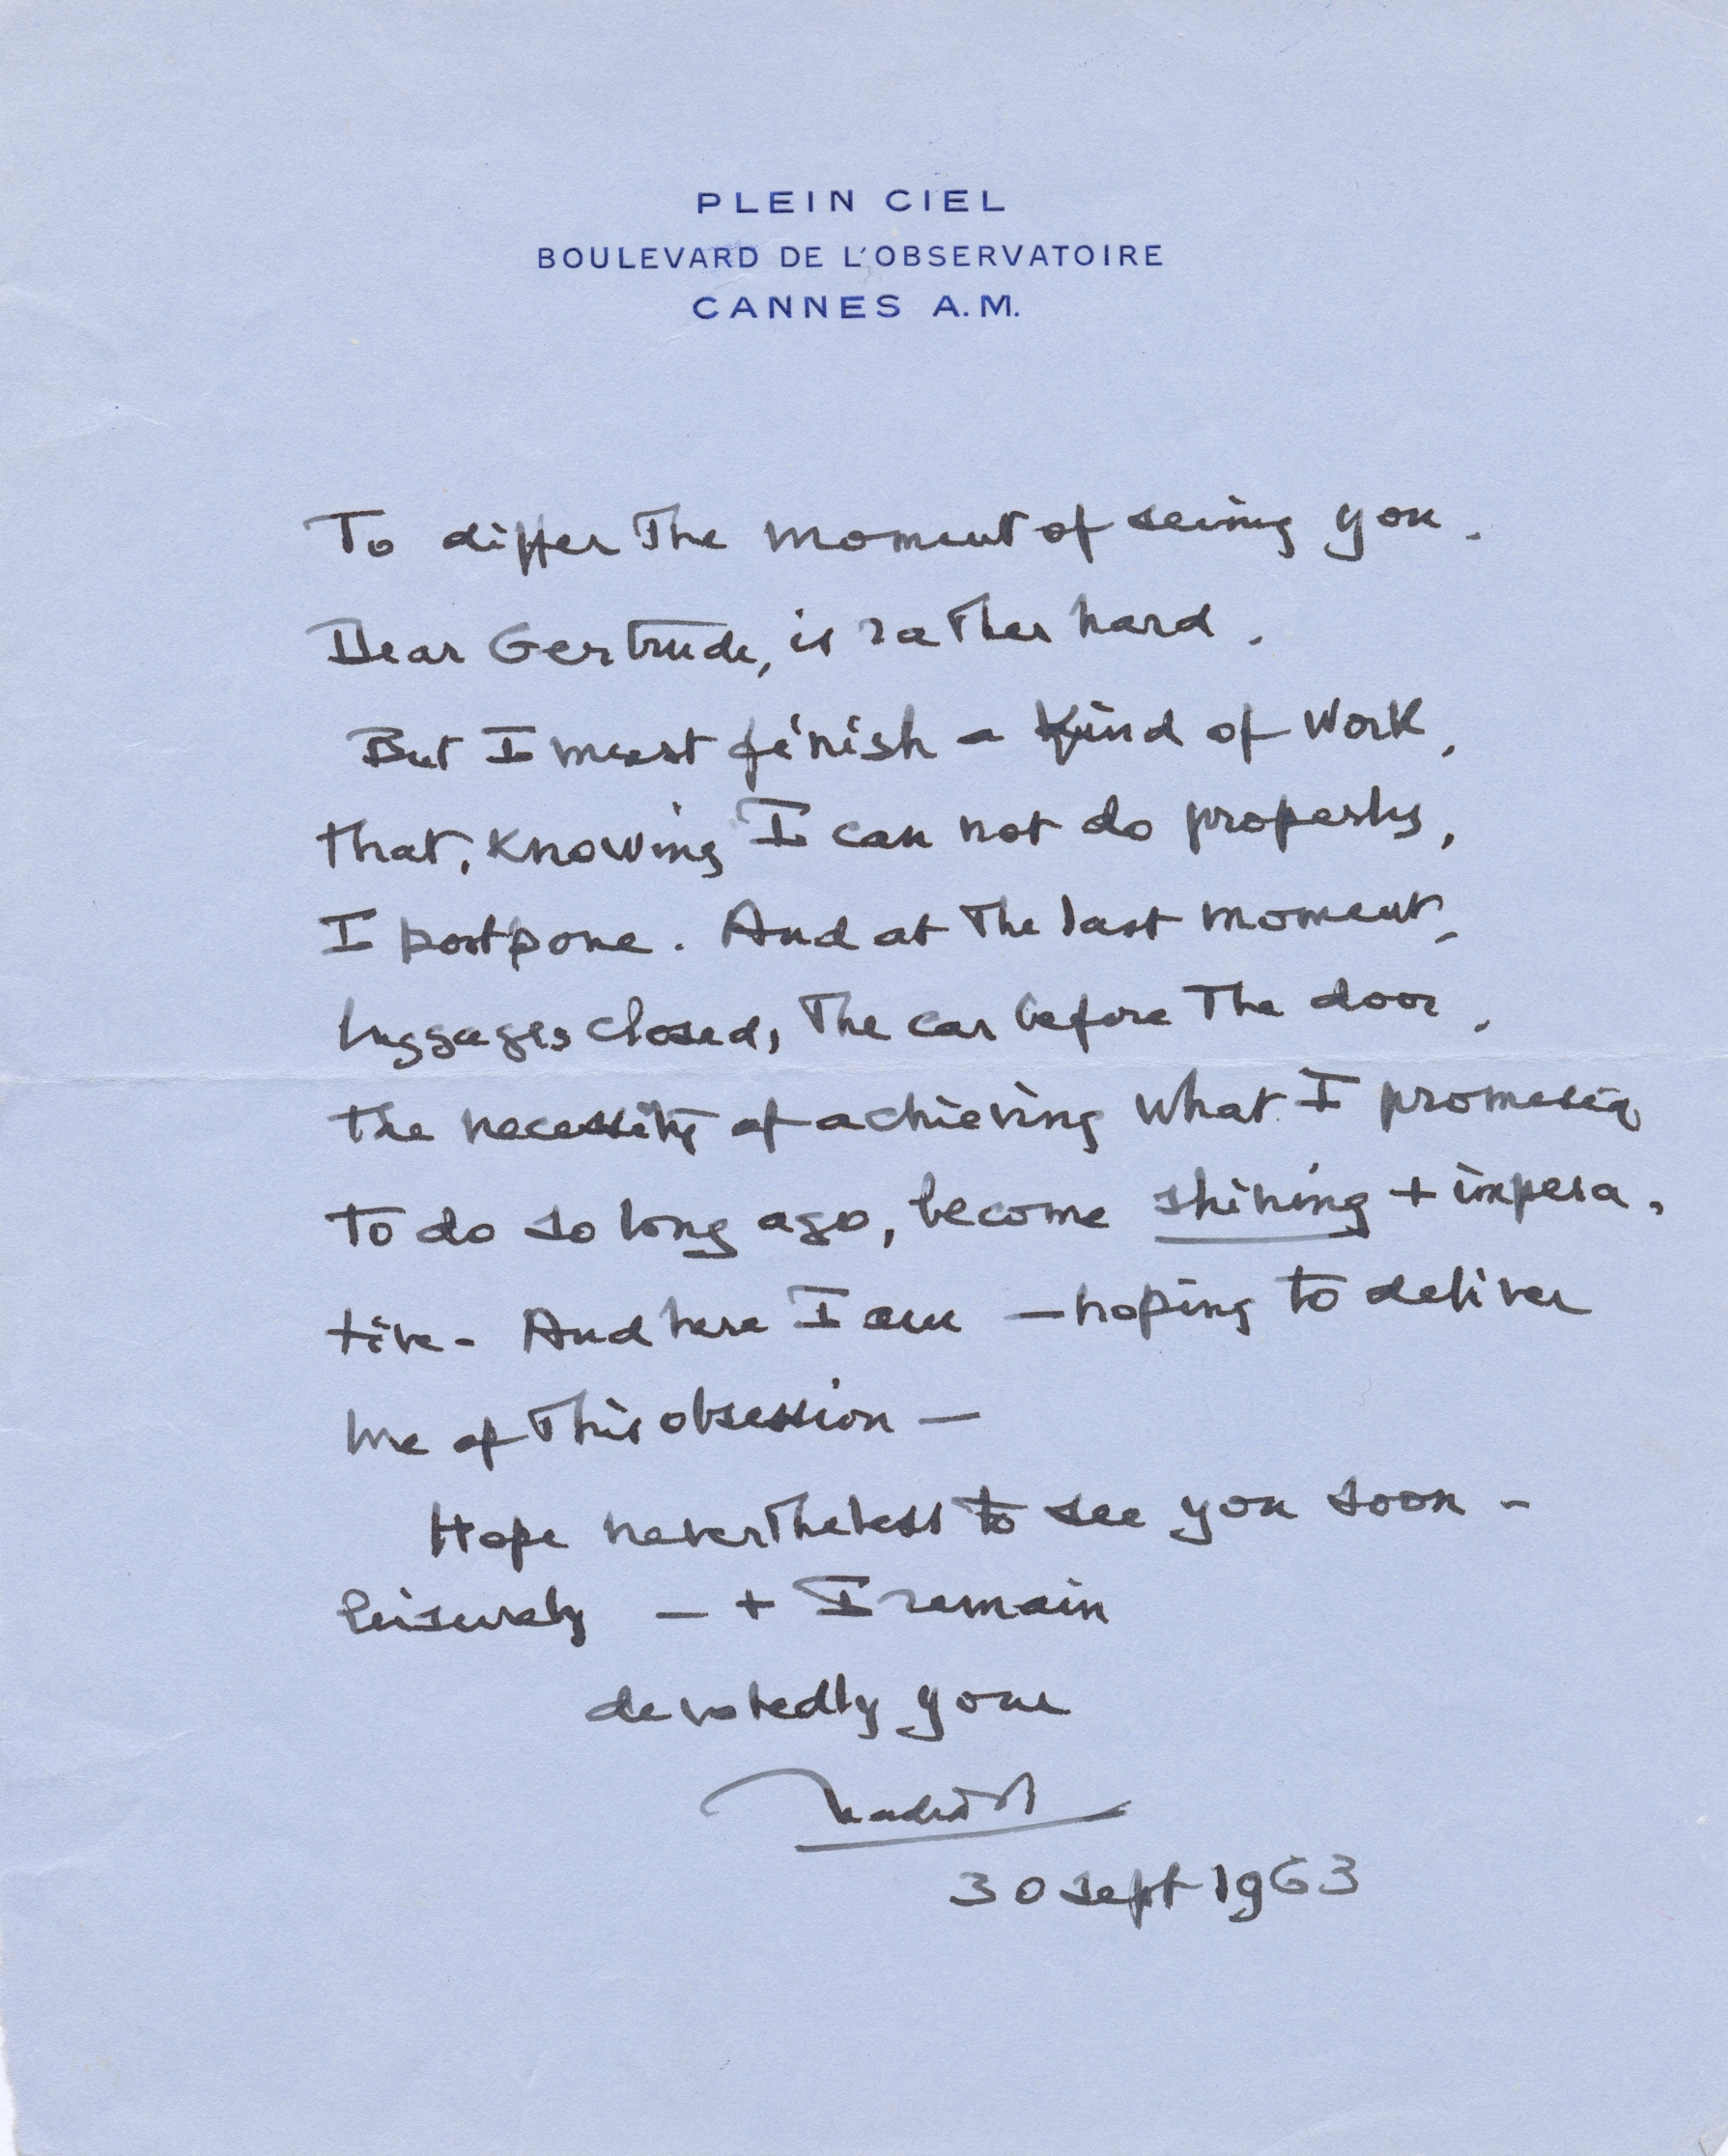 PLEIN CIEL
BOULEVARD DE L'OBSERVATOIRE
CANNES A.M.
To differ The moment of seing you.
Dear Gertrude, is rather hard.
But I must finish a kind of work,
that, knowing I can not do properly,
I postpone. And at The last moment,
luggages closed, The car before The door,
the necessity of achieving what I
to do so long ago, become shining + impera-
tive - And here I am — hoping to deliver
me of This obsession —
Hope nevertheless to see you soon -
leisurely — + I remain
devotedly your
30 sept 1963